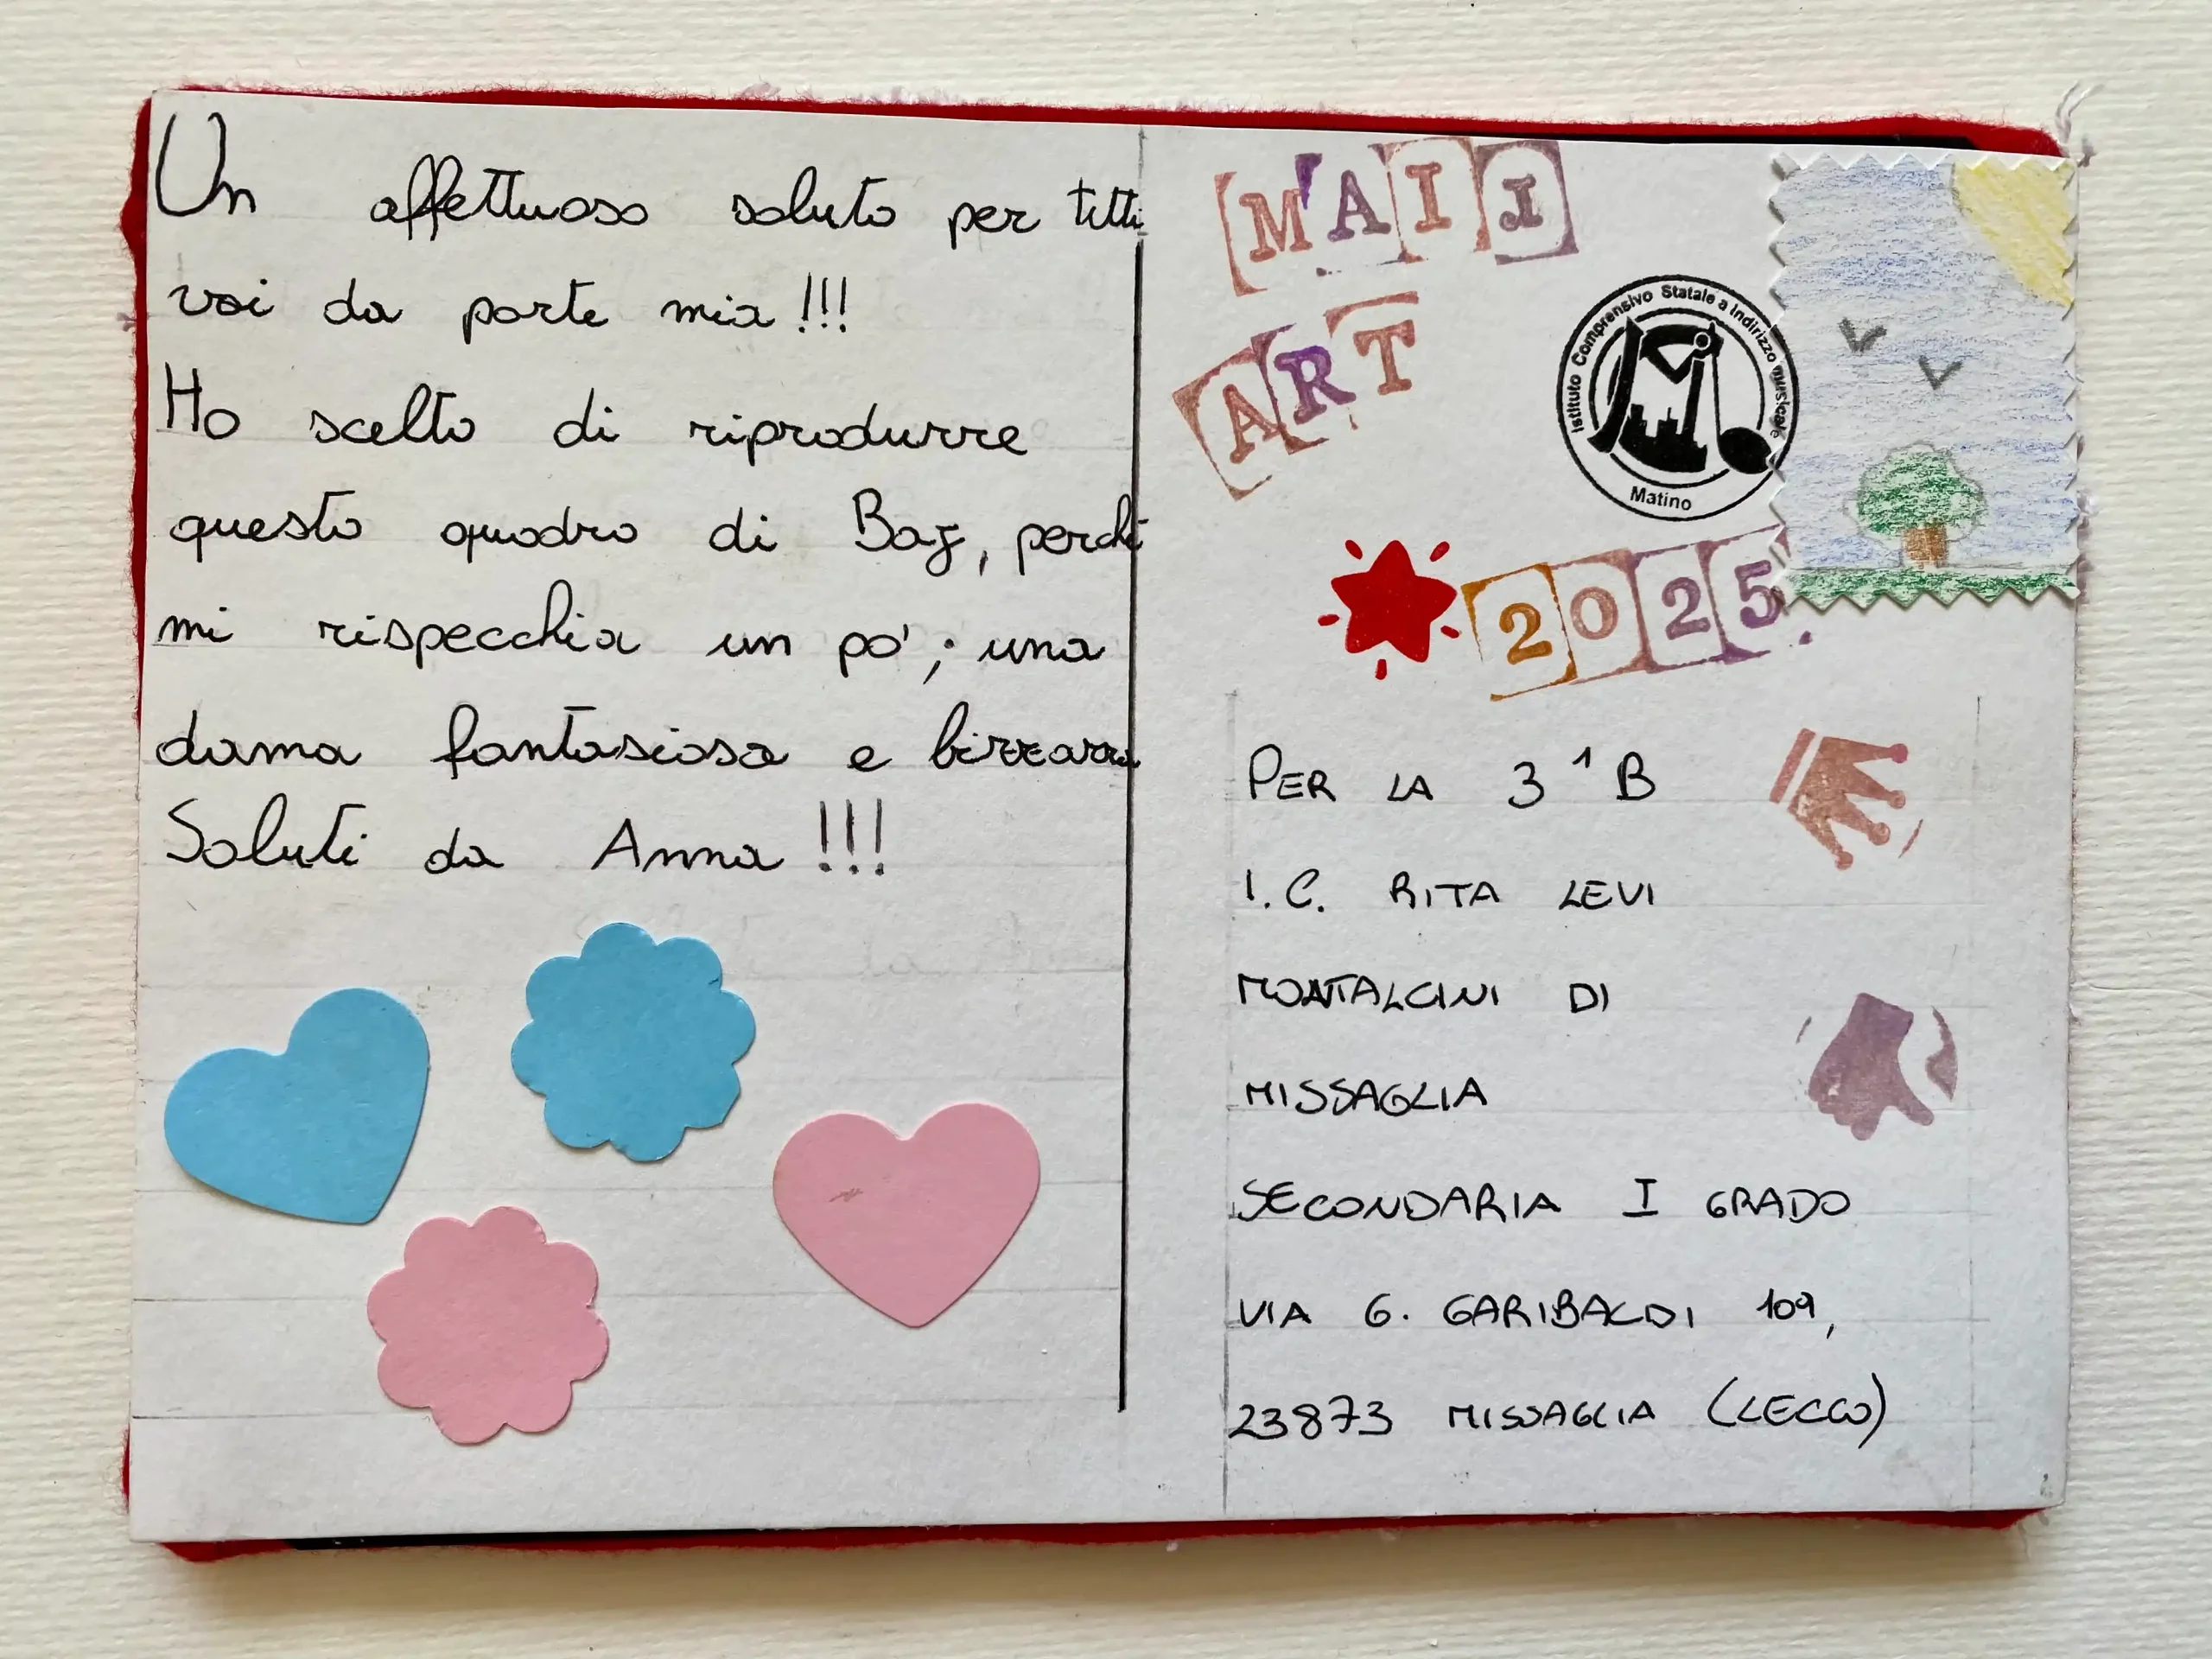 Un affettuoso saluto per tutti
voi da parte mia!!!
Ho scelto di riprodurre
questo quadro di Baj, perchè
mi rispecchia un po'; una
dama fantasiosa e bizzarra
Saluti da Anna!!!
MAIL
ART
Istituto Comprensivo Statale a Indirizzo musicale
Matino
2025
PER LA 3^B
I.C. RITA LEVI
MONTALCINI DI
MISSAGLIA
SECONDARIA I GRADO
VIA G. GARIBALDI 109,
23873 MISSAGLIA (LECCO)